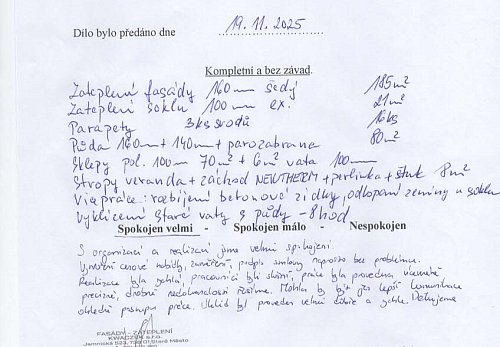 Dílo bylo předáno dne 19. 11. 2025
Kompletní a bez závad.
Zateplení fasády 160mm šedý 185m²
Zateplení soklu 100mm ex. 21m²
Parapety 3ks svodů 16ks
Půda 160m + 140m + parozabrana 80m²
Sklepy pol. 100m 70m² + 6m² vata 100mm
Stropy veranda + záchod NEWTHERM + perlinka + štuk 8m²
Vícepráce: rozbíjení betonové zídky, odkopání zeminy u soklu
Vyklízení staré vaty s půdy - 8hod
Spokojen velmi - Spokojen málo - Nespokojen
S organizací a realizací jsme velmi spokojeni.
Vytvoření cenové nabídky, zaměření, podpis smlouvy naprosto bez problému.
Realizace byla rychlá, pracovníci byli slušní, práce byla provedena víceméně
precizně, drobné nedokonalosti řešíme. Mohla by být jen lepší komunikace
ohledně postupu práce. Úklid byl proveden velmi dobře a rychle. Děkujeme
FASÁDY - ZATEPLENÍ
KWACZEK s.r.o.
Jamnická 523, 738 01 Staré Město